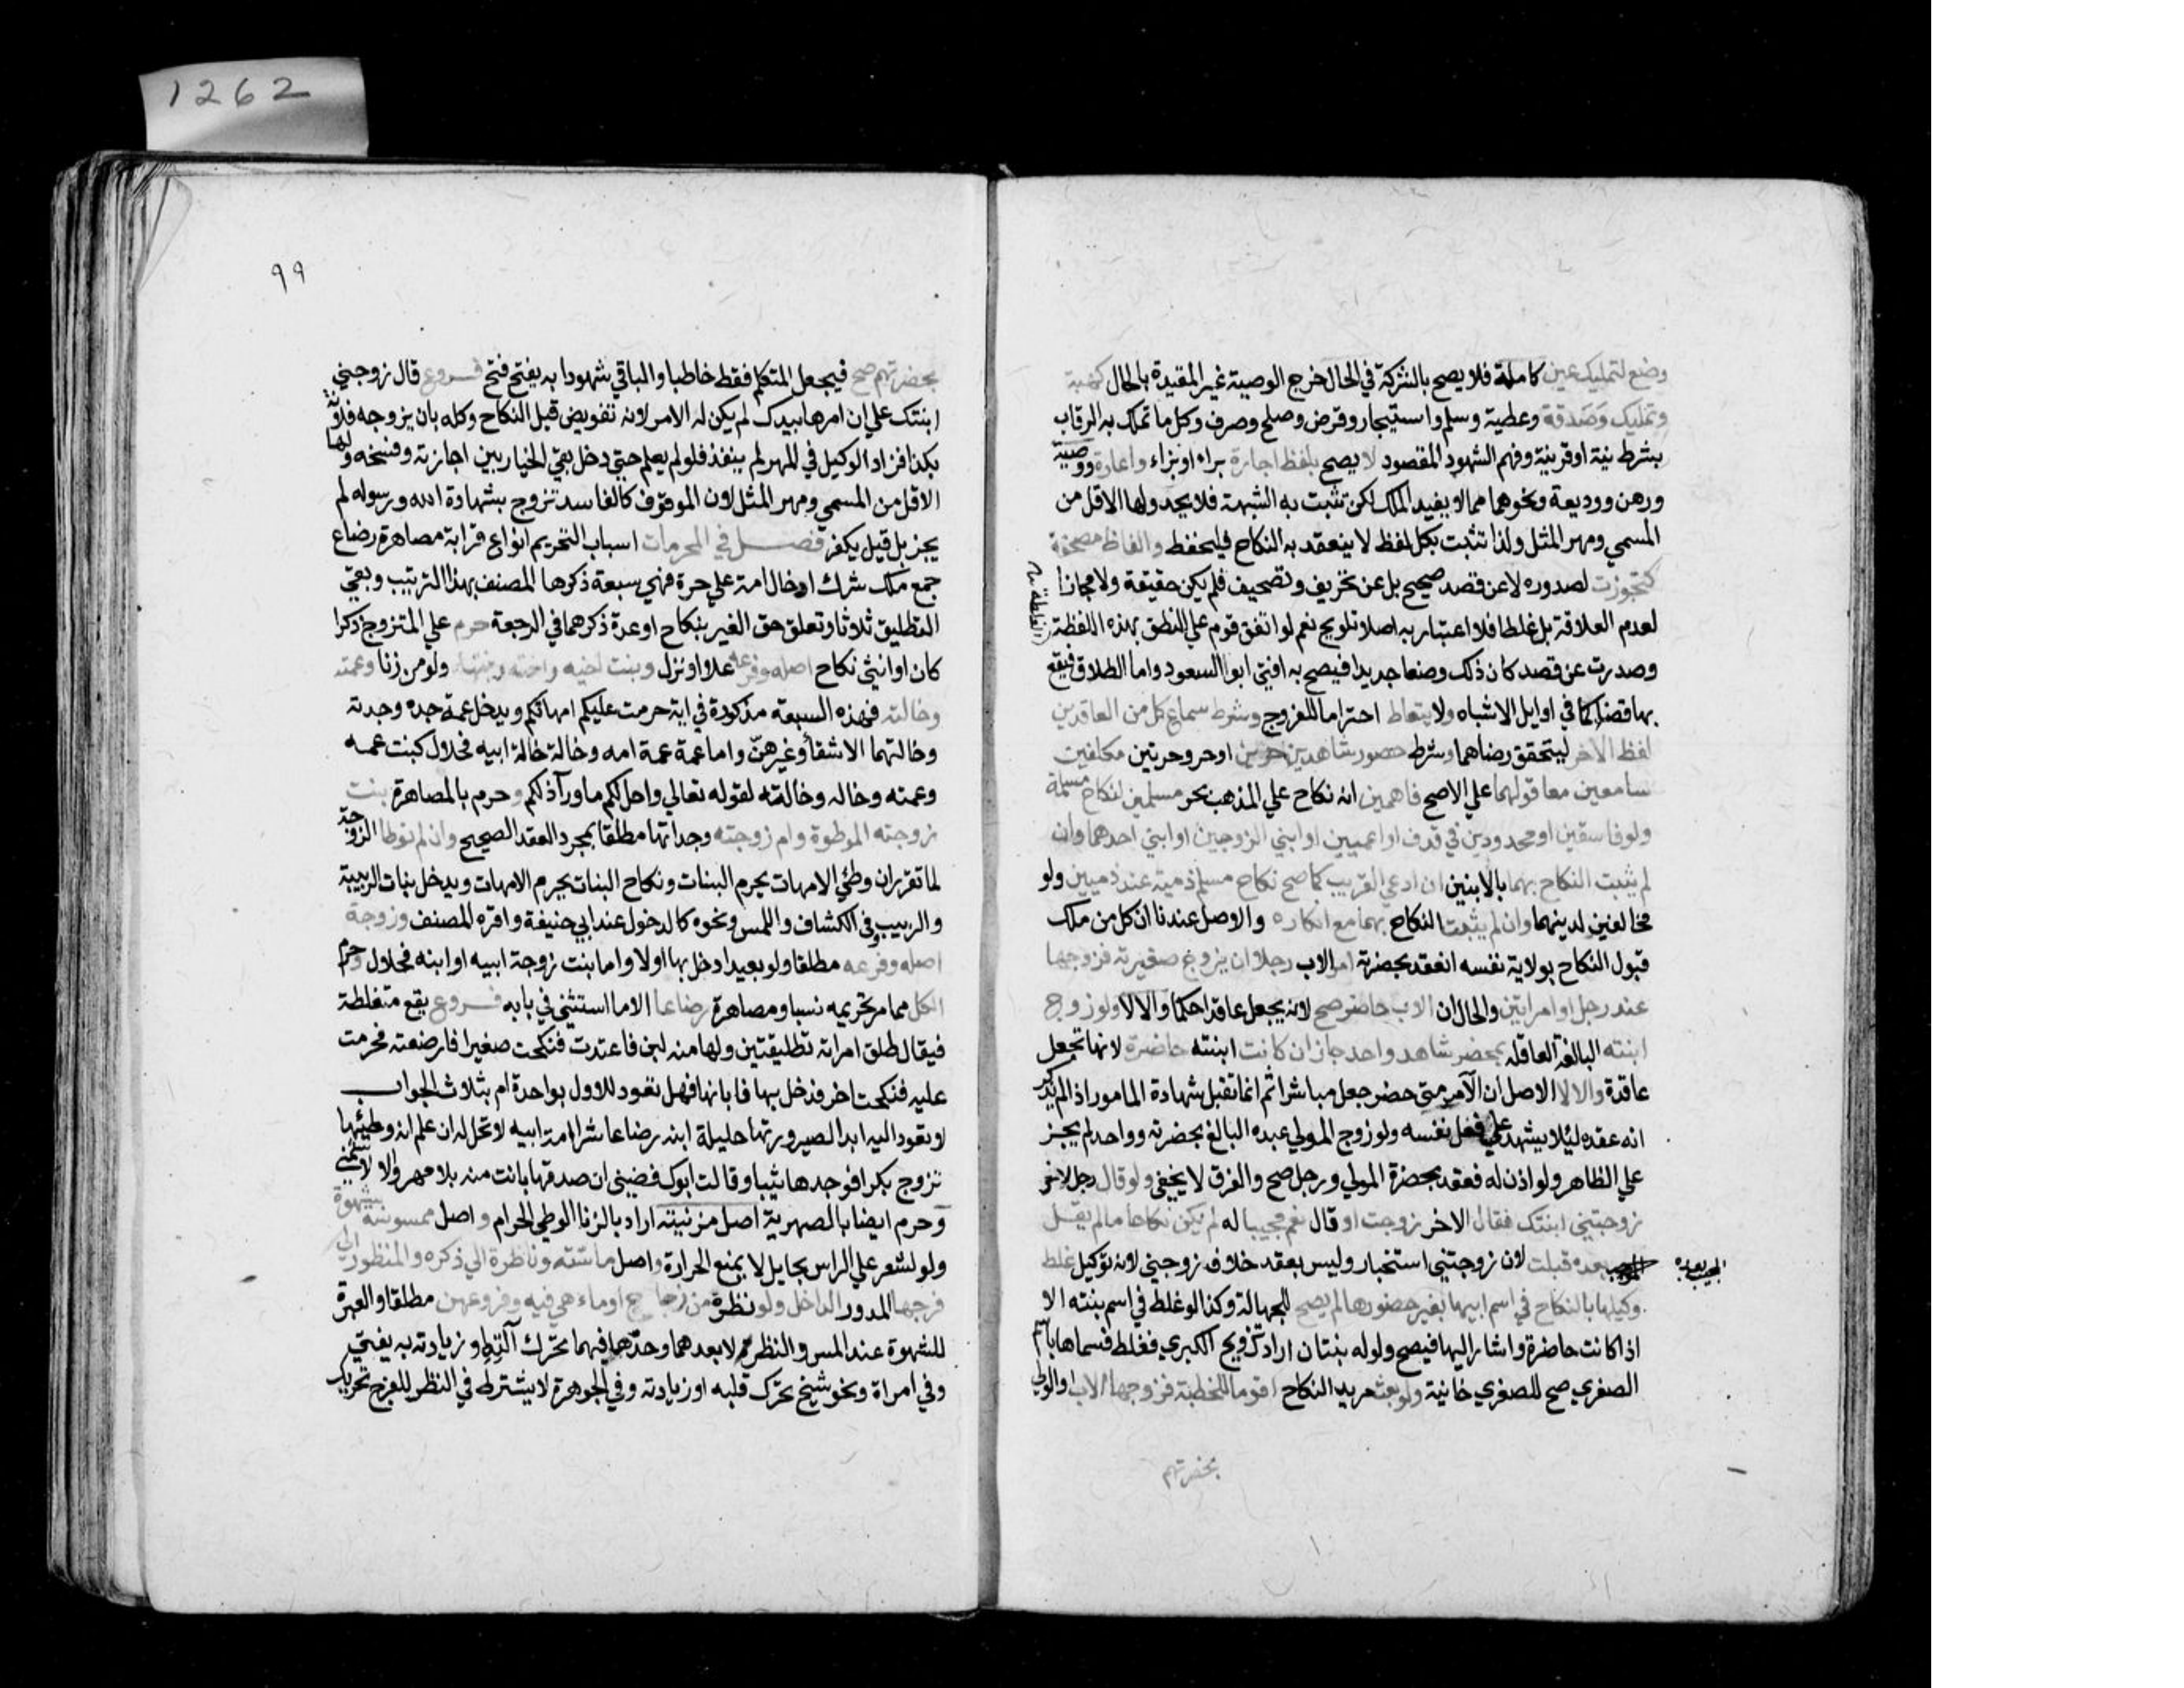 1262
وضع لتمليك عين كاملة فلا يصح بالشركة في الحال خرج الوصية غير المقيدة بالحال كهبة
وتمليك وصدقة وعطية وسلم واستيجار وقرض وصلح وصرف وكل ما تملك به الرقاب
بشرط نية او قرينة وفهم الشهود المقصود لا يصح بلفظ اجارة براء او بزاء واعارة ووصية
ورهن ووديعة ونحوهما مما لا يفيد الملك لكن تثبت به الشبهة فلا يحد ولها الاقل من
المسمي ومهر المثل ولذا تثبت بكل لفظ لا ينعقد به النكاح فليحفظ والفاظ مصحفة
كتجوزت لصدوره لا عن قصد صحيح بل عن تحريف وتصحيف فلم يكن حقيقة ولا مجازا
لعدم العلاقة بل غلطا فلا اعتبار به اصلا تلويح نعم لو اتفق قوم علي النطق بهذه اللفظة
وصدرت عن قصد كان ذلك وضعا جديدا فيصح به افتي ابو السعود واما الطلاق فيقع
بها قضا كما في اوايل الاشباه ولا بتعاط احتراما للفروج وشرط سماع كل من العاقدين
لفظ الاخر ليتحقق رضاهما وشرط حضور شاهدين حرين او حر وحرتين مكلفين
سامعين معا قولهما علي الاصح فاهمين انه نكاح علي المذهب بحر مسلمين لنكاح مسلمة
ولو فاسقين او محدودين في قذف او اعميين او ابني الزوجين او ابني احدهما وان
لم يثبت النكاح بهما بالابنين ان ادعي القريب كما صح نكاح مسلم ذمية عند ذميين ولو
مخالفين لدينهما وان لم يثبت النكاح بهما مع انكاره والاصل عندنا ان كل من ملك
قبول النكاح بولاية نفسه انعقد بحضرته امر الاب رجلا ان يزوج صغيرته فزوجها
عند رجل او امراتين والحال ان الاب حاضر صح لانه يجعل عاقدا حكما والا لا ولو زوج
ابنته البالغة العاقلة بمحضر شاهد واحد جاز ان كانت ابنته حاضرة لانها تجعل
عاقدة والا لا الاصل ان الآمر متي حضر جعل مباشرا ثم انما تقبل شهادة المامور اذا لم يذكر
انه عقده ليلا يشهد علي فعل نفسه ولو زوج المولي عبده البالغ بحضرته وواحد لم يجز
علي الظاهر ولو اذن له فعقد بحضرة المولي ورجل صح والفرق لا يخفي ولو قال رجل لاخر
زوجتني ابنتك فقال الاخر زوجت او قال نعم مجيبا له لم يكن نكاحا ما لم يقل
بعده قبلت لان زوجتني استخبار وليس بعقد خلاف زوجني لانه توكيل غلط
المجيب بعده
وكيلها بالنكاح في اسم ابيها بغير حضورها لم يصح للجهالة وكذا لو غلط في اسم بنته الا
اذا كانت حاضرة واشار اليها فيصح ولو له بنتان اراد تزويج الكبري فغلط فسماها باسم
الصغري صح للصغري خانية ولو بعث مريد النكاح اقوما للخطبة فزوجها الاب او الولي
بحضرتهم
٩٩
بحضرتهم صح فيجعل المتكلم فقط خاطبا والباقي شهودا به يفتح فتح فروع قال زوجني
ابنتك علي ان امرها بيدك لم يكن له الامر لانه تفويض قبل النكاح وكله بان يزوجه فلانة
بكذا فزاد الوكيل في المهر لم ينفذ فلو لم يعلم حتي دخل بقي الخيار بين اجازته وفسخه ولها
الاقل من المسمي ومهر المثل لان الموقوف كالفاسد تزوج بشهادة الله ورسوله لم
يجز بل قيل يكفر فصل في المحرمات اسباب التحريم انواع قرابة مصاهرة رضاع
جمع ملك شرك ادخال امة علي حرة فهي سبعة ذكرها المصنف بهذا الترتيب وبقي
التطليق ثلاثا وتعلق حق الغير بنكاح او عدة ذكرهما في الرجعة حرم علي المتزوج ذكرا
كان او انثي نكاح اصله وفرعه علا او نزل وبنت اخيه واخته وبنتها ولو من زنا وعمته
وخالته فهذه السبعة مذكورة في اية حرمت عليكم امهاتكم ويدخل عمة جده وجدته
وخالتهما الاشقا وغيرهن واما عمة عمة امه وخالة خالة ابيه فحلال كبنت عمه
وعمته وخاله وخالته لقوله تعالي واحل لكم ما ورآ ذلكم وحرم بالمصاهرة بنت
زوجته الموطوة وام زوجته وجداتها مطلقا بمجرد العقد الصحيح وان لم توطا الزوجة
لما تقرر ان وطئ الامهات يحرم البنات ونكاح البنات يحرم الامهات ويدخل بنات الربيبة
والربيب وفي الكشاف واللمس ونحوه كالدخول عند ابي حنيفة واقره المصنف وزوجة
اصله وفرعه مطلقا ولو بعيدا دخل بها اولا واما بنت زوجة ابيه او ابنه فحلال وحرم
الكل مما مر تحريمه نسبا ومصاهرة رضاعا الا ما استثني في بابه فروع يقع مغلطة
فيقال طلق امراته تطليقتين ولها منه لبن فاعتدت فنكحت صغيرا فارضعته فحرمت
عليه فنكحت اخر فدخل بها فابانها فهل تعود للاول بواحدة ام بثلاث الجواب
لا تعود اليه ابدا لصيرورتها حليلة ابنه رضاعا شرا امة ابيه لا تحل له ان علم انه وطئها
تزوج بكرا فوجدها ثيبا وقالت ابوك فضني ان صدقها بانت منه بلا مهر والا لا شمني
وحرم ايضا بالصهرية اصل مزنيته اراد بالزنا الوطي الحرام واصل ممسوسته بشهوة
ولو لشعر علي الراس بحايل لا يمنع الحرارة واصل ماسته وناظرة الي ذكره والمنظور الي
فرجها المدور الداخل ولو نظره من زجاج او ماء هي فيه وفروعهن مطلقا والعبرة
للشهوة عند المس والنظر لا بعدهما وحدها فيهما تحرك آلته او زيادته به يفتي
وفي امراة ونحو شيخ تحرك قلبه او زيادته وفي الجوهرة لا يشترط في النظر للفرج تحريك